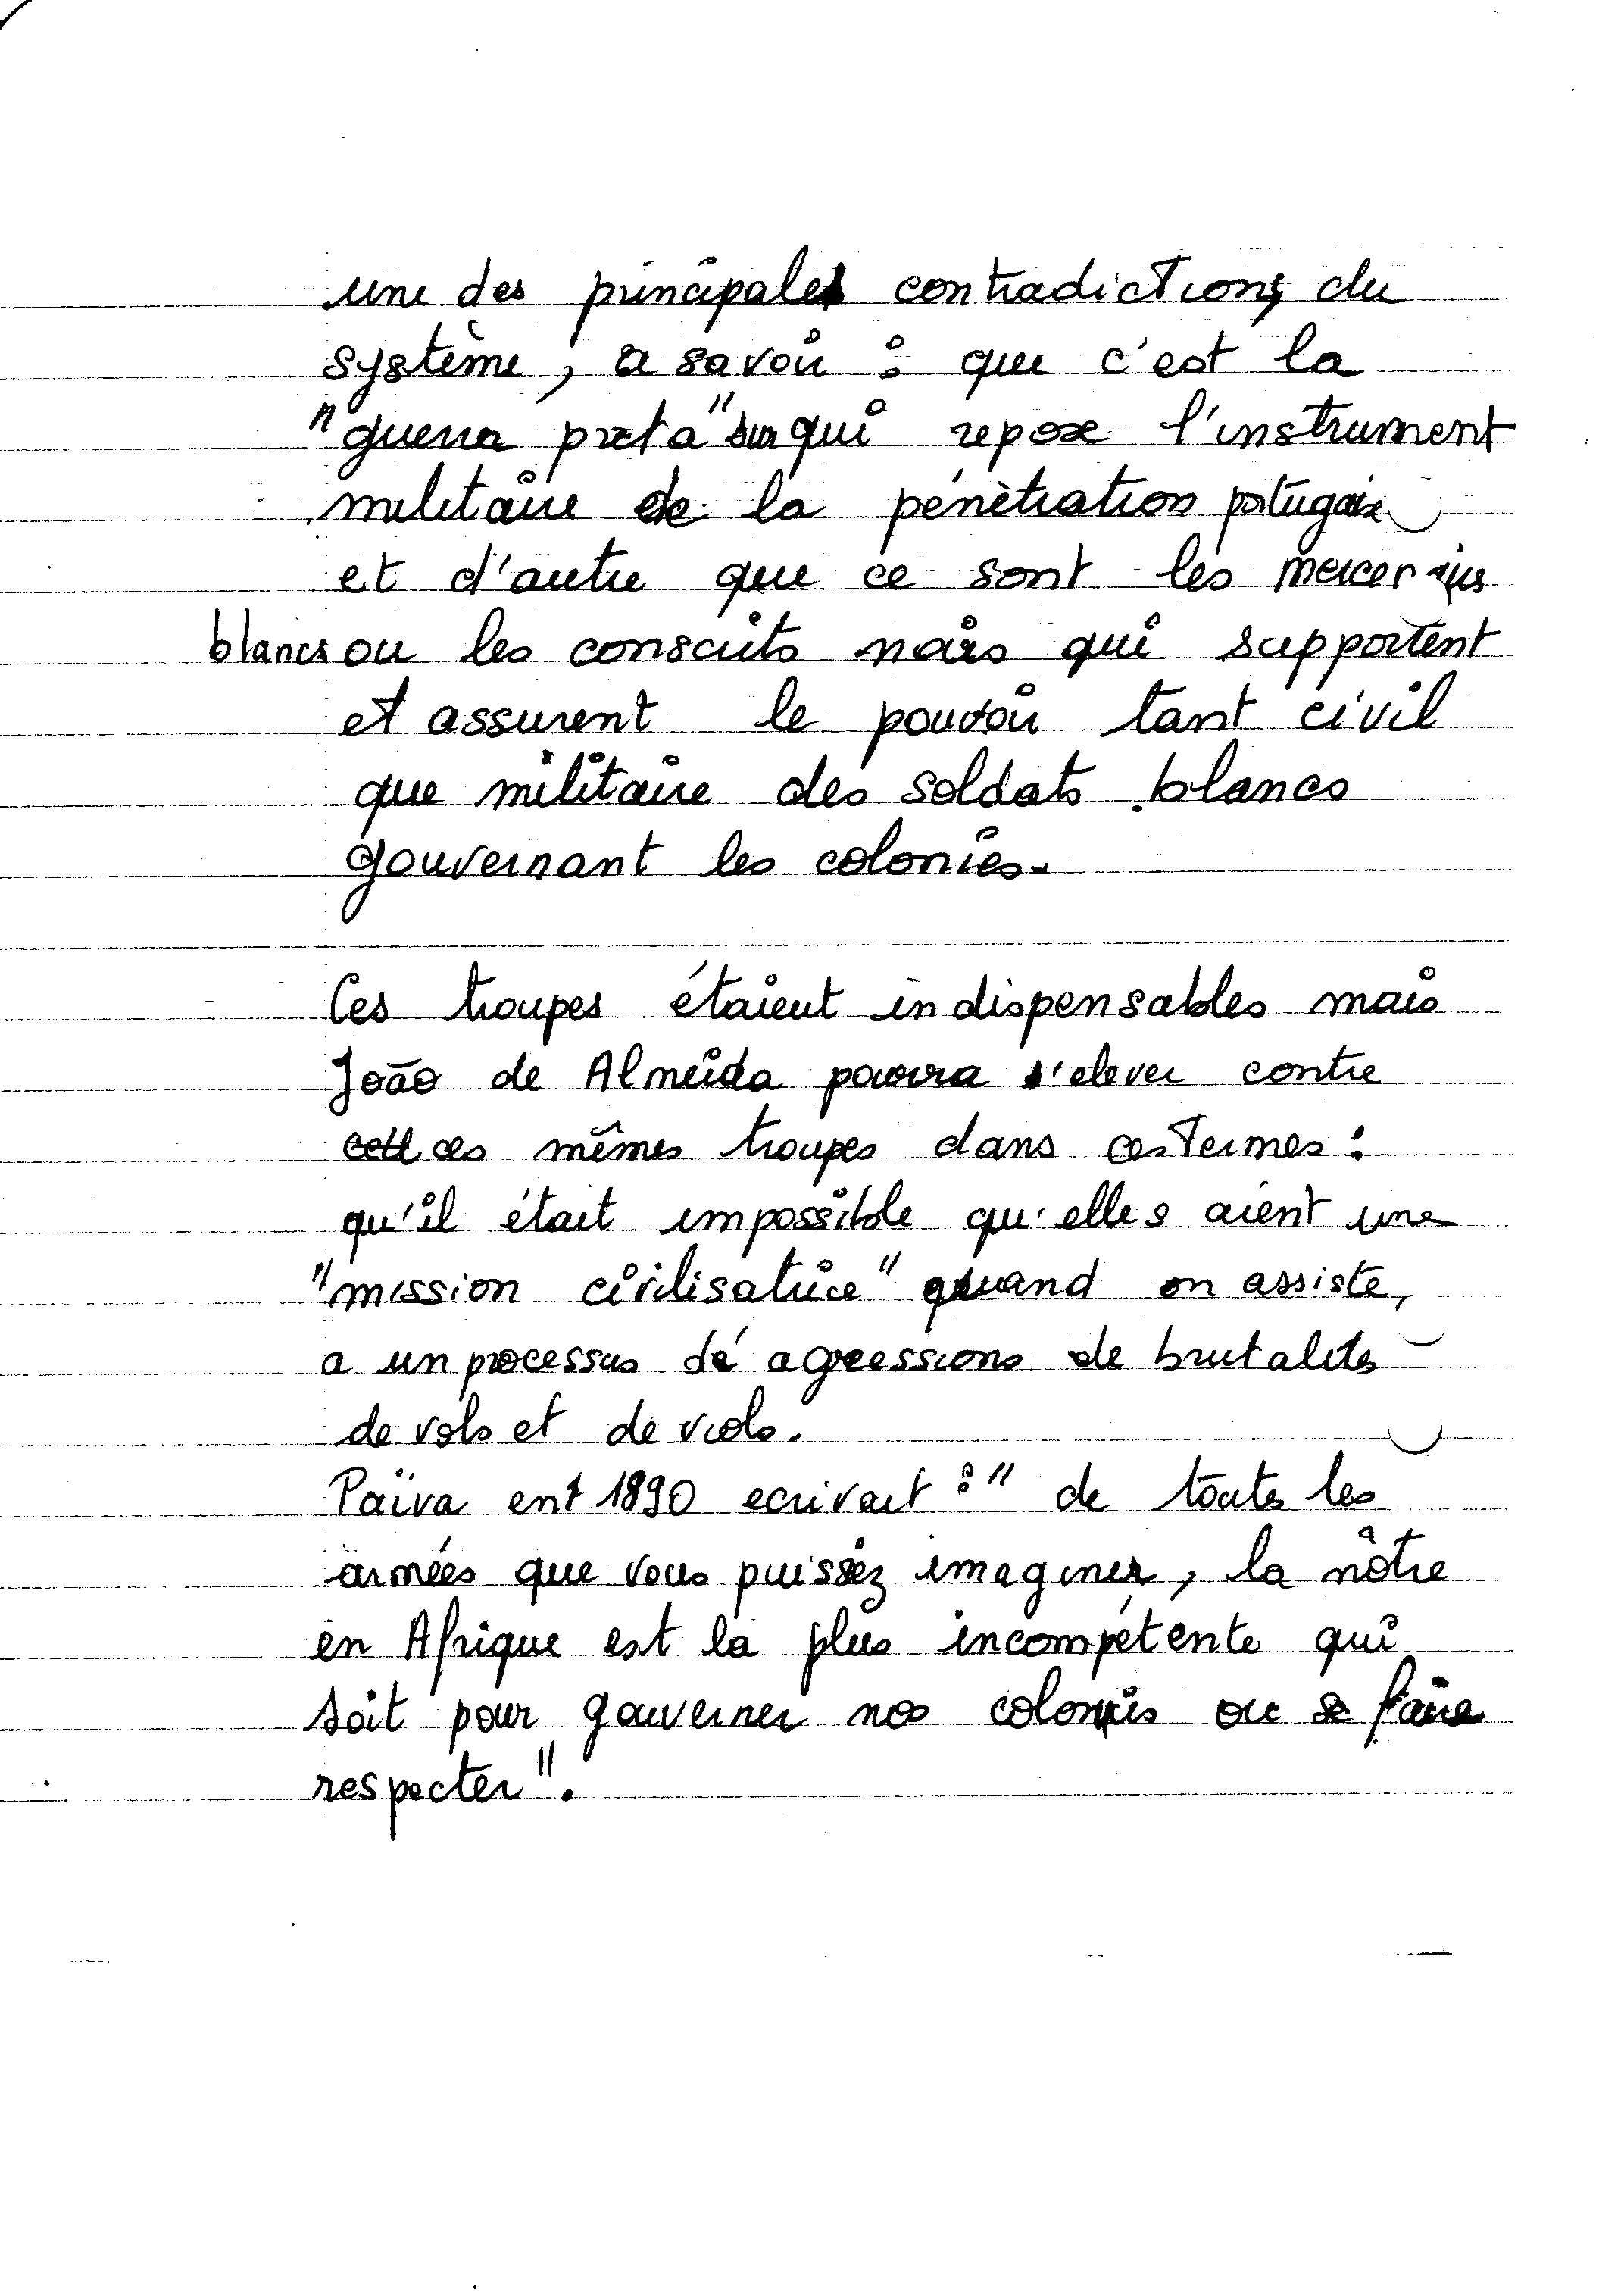 une des principales contradictions du
système, a savoir : que c'est la
"guerra preta" sur qui repose l'instrument
militaire de la pénètration portugaise
et d'autre que ce sont les mercenaires
blancs ou les conscrits noirs qui supportent
et assurent le pouvoir tant civil
que militaire des soldats blancs
gouvernant les colonies.
Ces troupes étaient indispensables mais
João de Almeida pourra s'elever contre
ces mêmes troupes dans ces termes :
qu'il était impossible qu'elles aient une
"mission civilisatrice" quand on assiste,
a un processus de agressions de brutalites
de vols et de viols.
Païva en 1890 ecrivait : " de toutes les
armées que vous puissiez imaginer, la nôtre
en Afrique est la plus incompétente qui
soit pour gouverner nos colonies ou se faire
respecter".